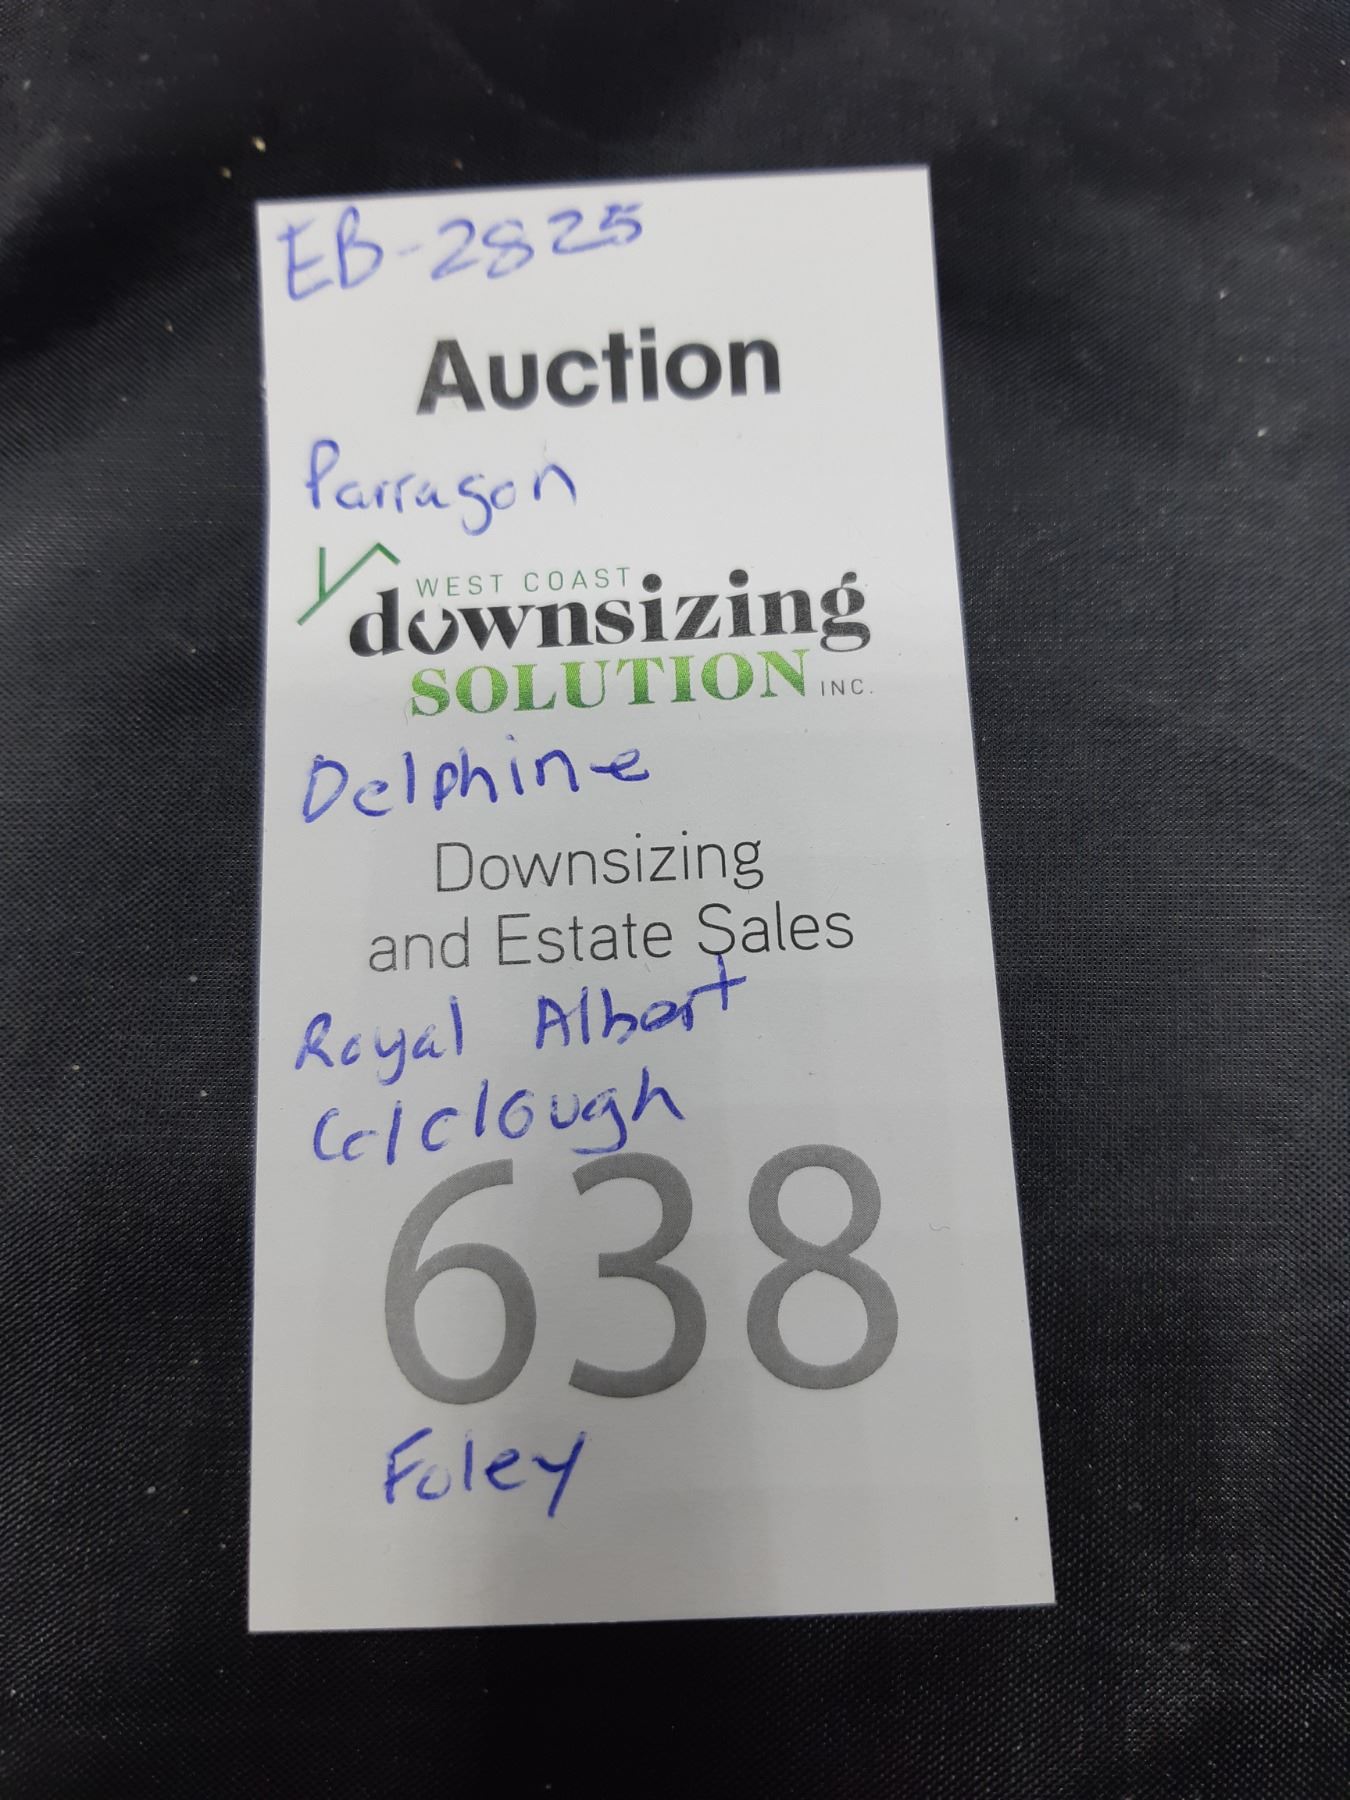 EB-2825
Auction
Parragon
WEST COAST
downsizing
SOLUTION INC.
Delphine
Downsizing
and Estate Sales
Royal Albert
Colclough
638
Foley